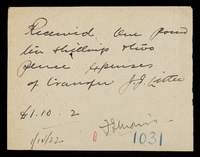 Received One pound
ten shillings & two
pence expenses
of transfer J. J. Little
£1.10.2
1031